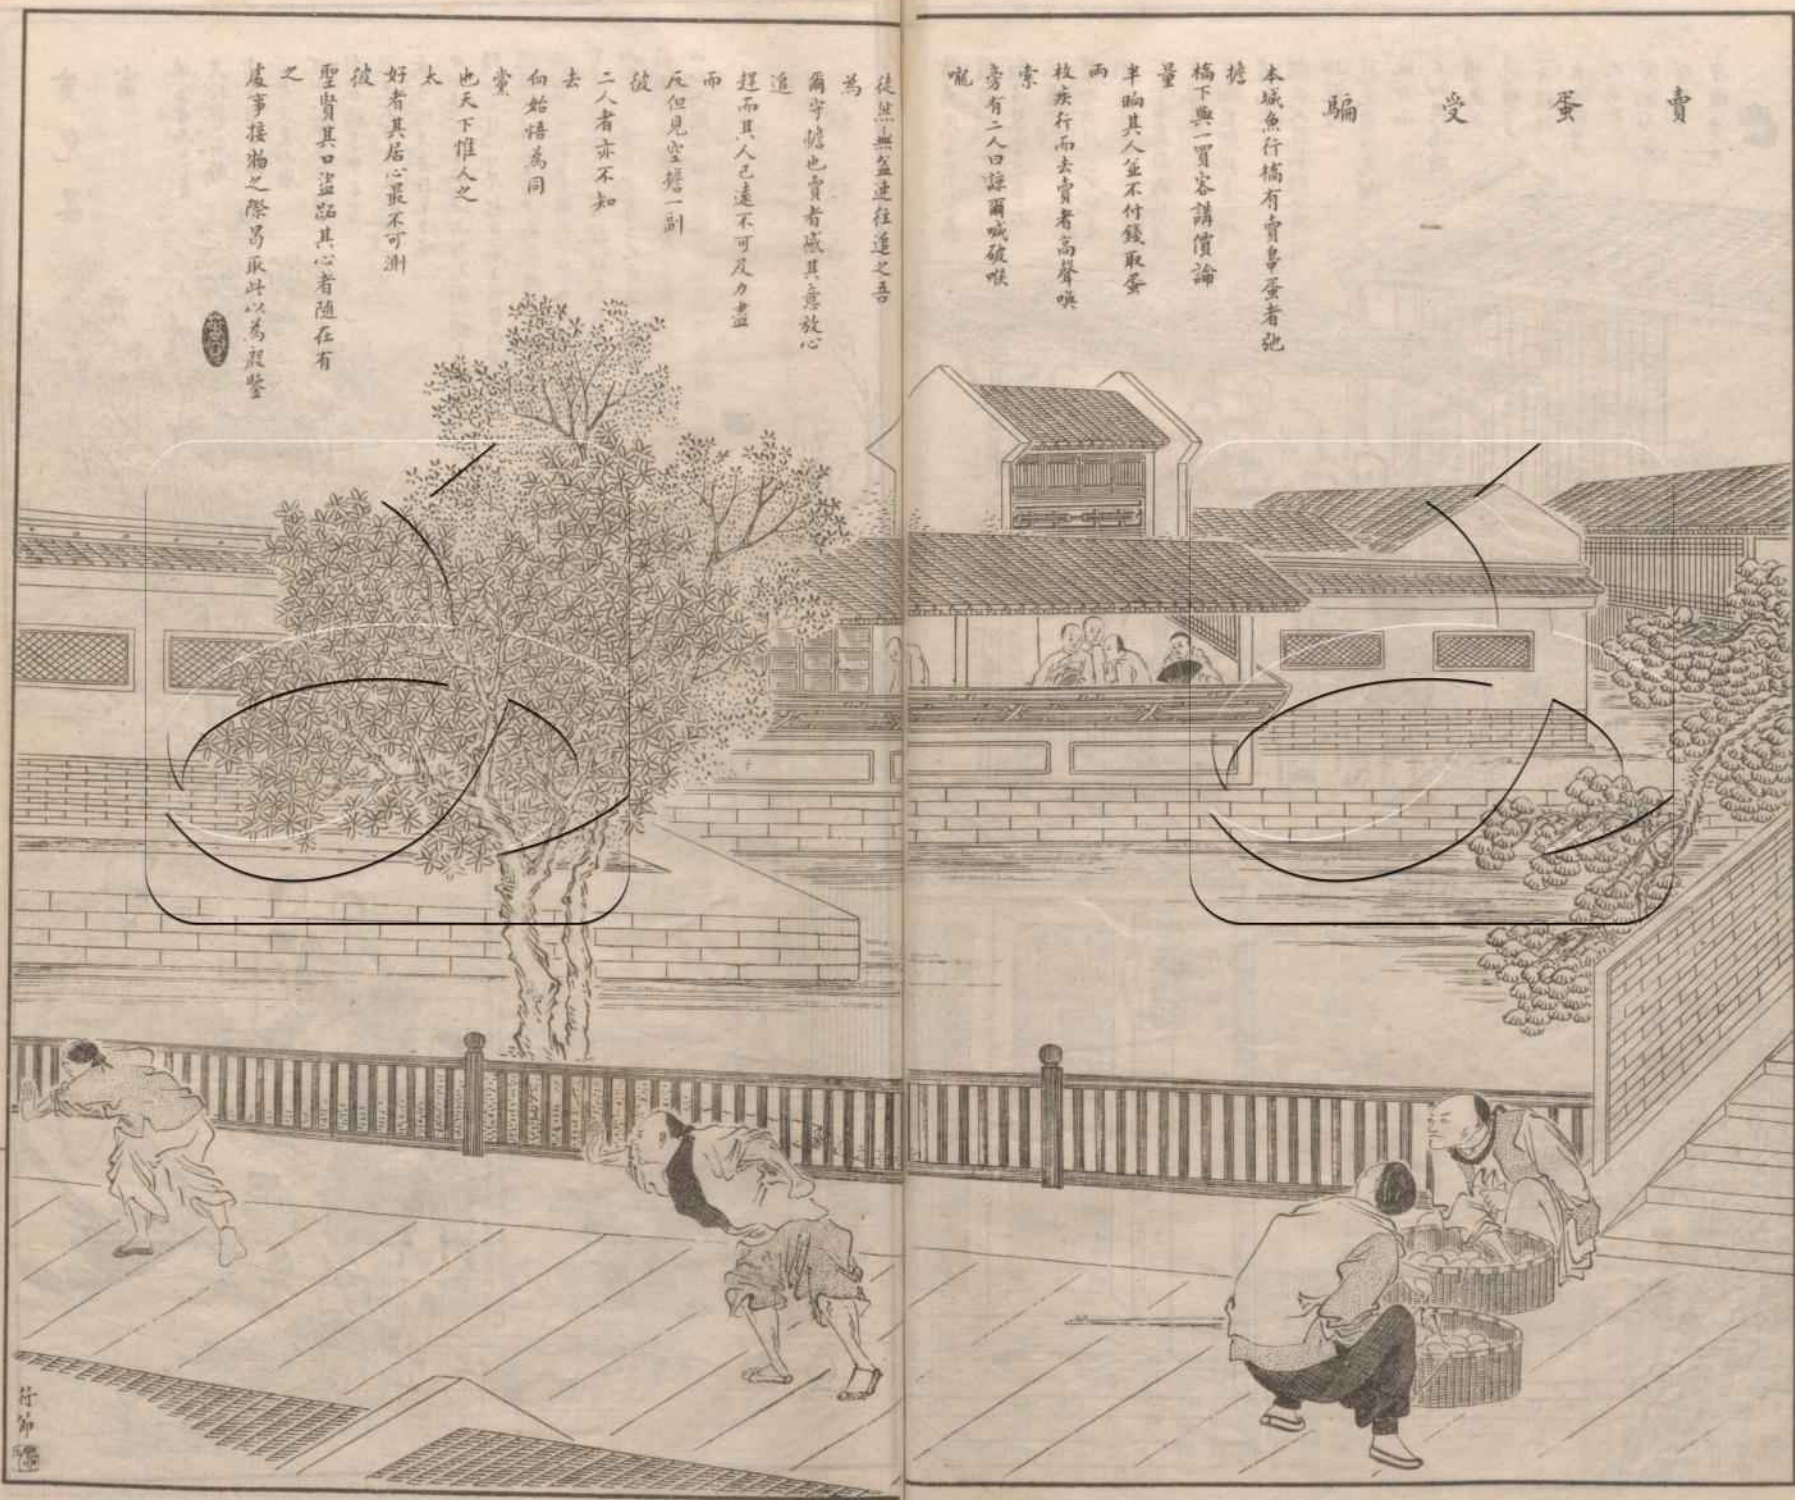 賣蛋受騙
本城魚行橋有賣蛋者弛
擔
橋下與一買客講價論
量
半晌其人並不付錢取蛋
兩
枚疾行而去賣者高聲喚
索
旁有二人曰諒爾喊破喉
嚨
徒然無益速往追之吾
為
爾守擔也賣者感其意放心
追
趕而其人已遠不可及力盡
而
反但見空擔一副
彼
二人者亦不知
去
向始悟為同
黨
也天下惟人之
太
好者其居心最不可測
彼
聖賢其口盜跖其心者隨在有
之
處事接物之際曷取此以為殷鑒
符節